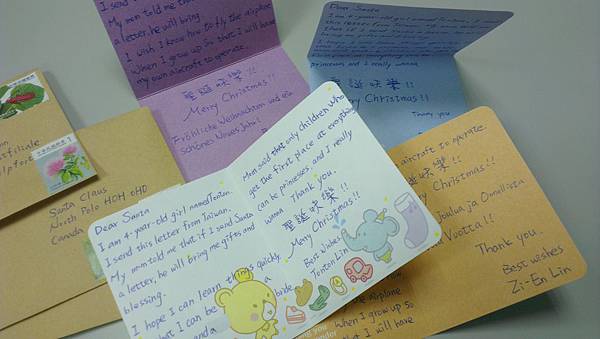 I send t
My mom told me that
a letter, he will bring
I wish I know how to fly the airplane
When I grow up so that I will have
my own aircraft to operate.
聖誕快樂!!
Merry Christmas!!
Fröhliche Weihnachten und ein
schönes Neues Jahr!
Dear Santa
I am 4-year-old girl named
this letter from
princess and I really wanna
聖誕快樂!!
Merry Christmas!!
Thank you
Santa Claus
North Pole HOH OHO
Canada
Dear Santa
I am 4-year-old girl named Tonton.
I send this letter from Taiwan.
My mom told me that if I send Santa
a letter, he will bring me gifts and
blessing.
I hope I can learn things quickly,
that I can be a
and a bride
Mom said that only children who
get the first place at everything
can be princesses, and I really
wanna
Thank you.
聖誕快樂!!
Merry Christmas!!
Best wishes
Tonton Lin
aircraft to operate.
聖誕快樂!!
Merry Christmas!!
Joulua ja Onnellista
Vuotta!!
Thank you.
Best wishes
Zi-En Lin
the airplane
When I grow up so
that I will have